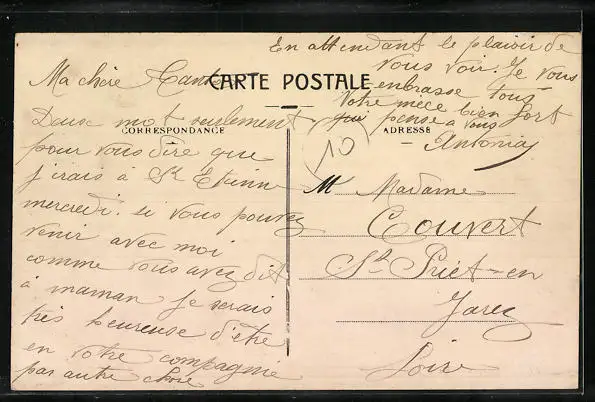 CARTE POSTALE
CORRESPONDANCE
ADRESSE
Ma chère Tante
Deux mot seulement
pour vous dire que
j'irais à St Etienne
mercredi. si vous pouvez
venir avec moi
comme vous avez dit
à maman je serais
très heureuse d'être
en votre compagnie
pas autre chose
En attendant le plaisir de
vous voir. Je vous
embrasse tous
Votre nièce bien fort
qui pense à vous
Antonia
10
M Madame
Couvert
St Priet-en
Jarez
Loire